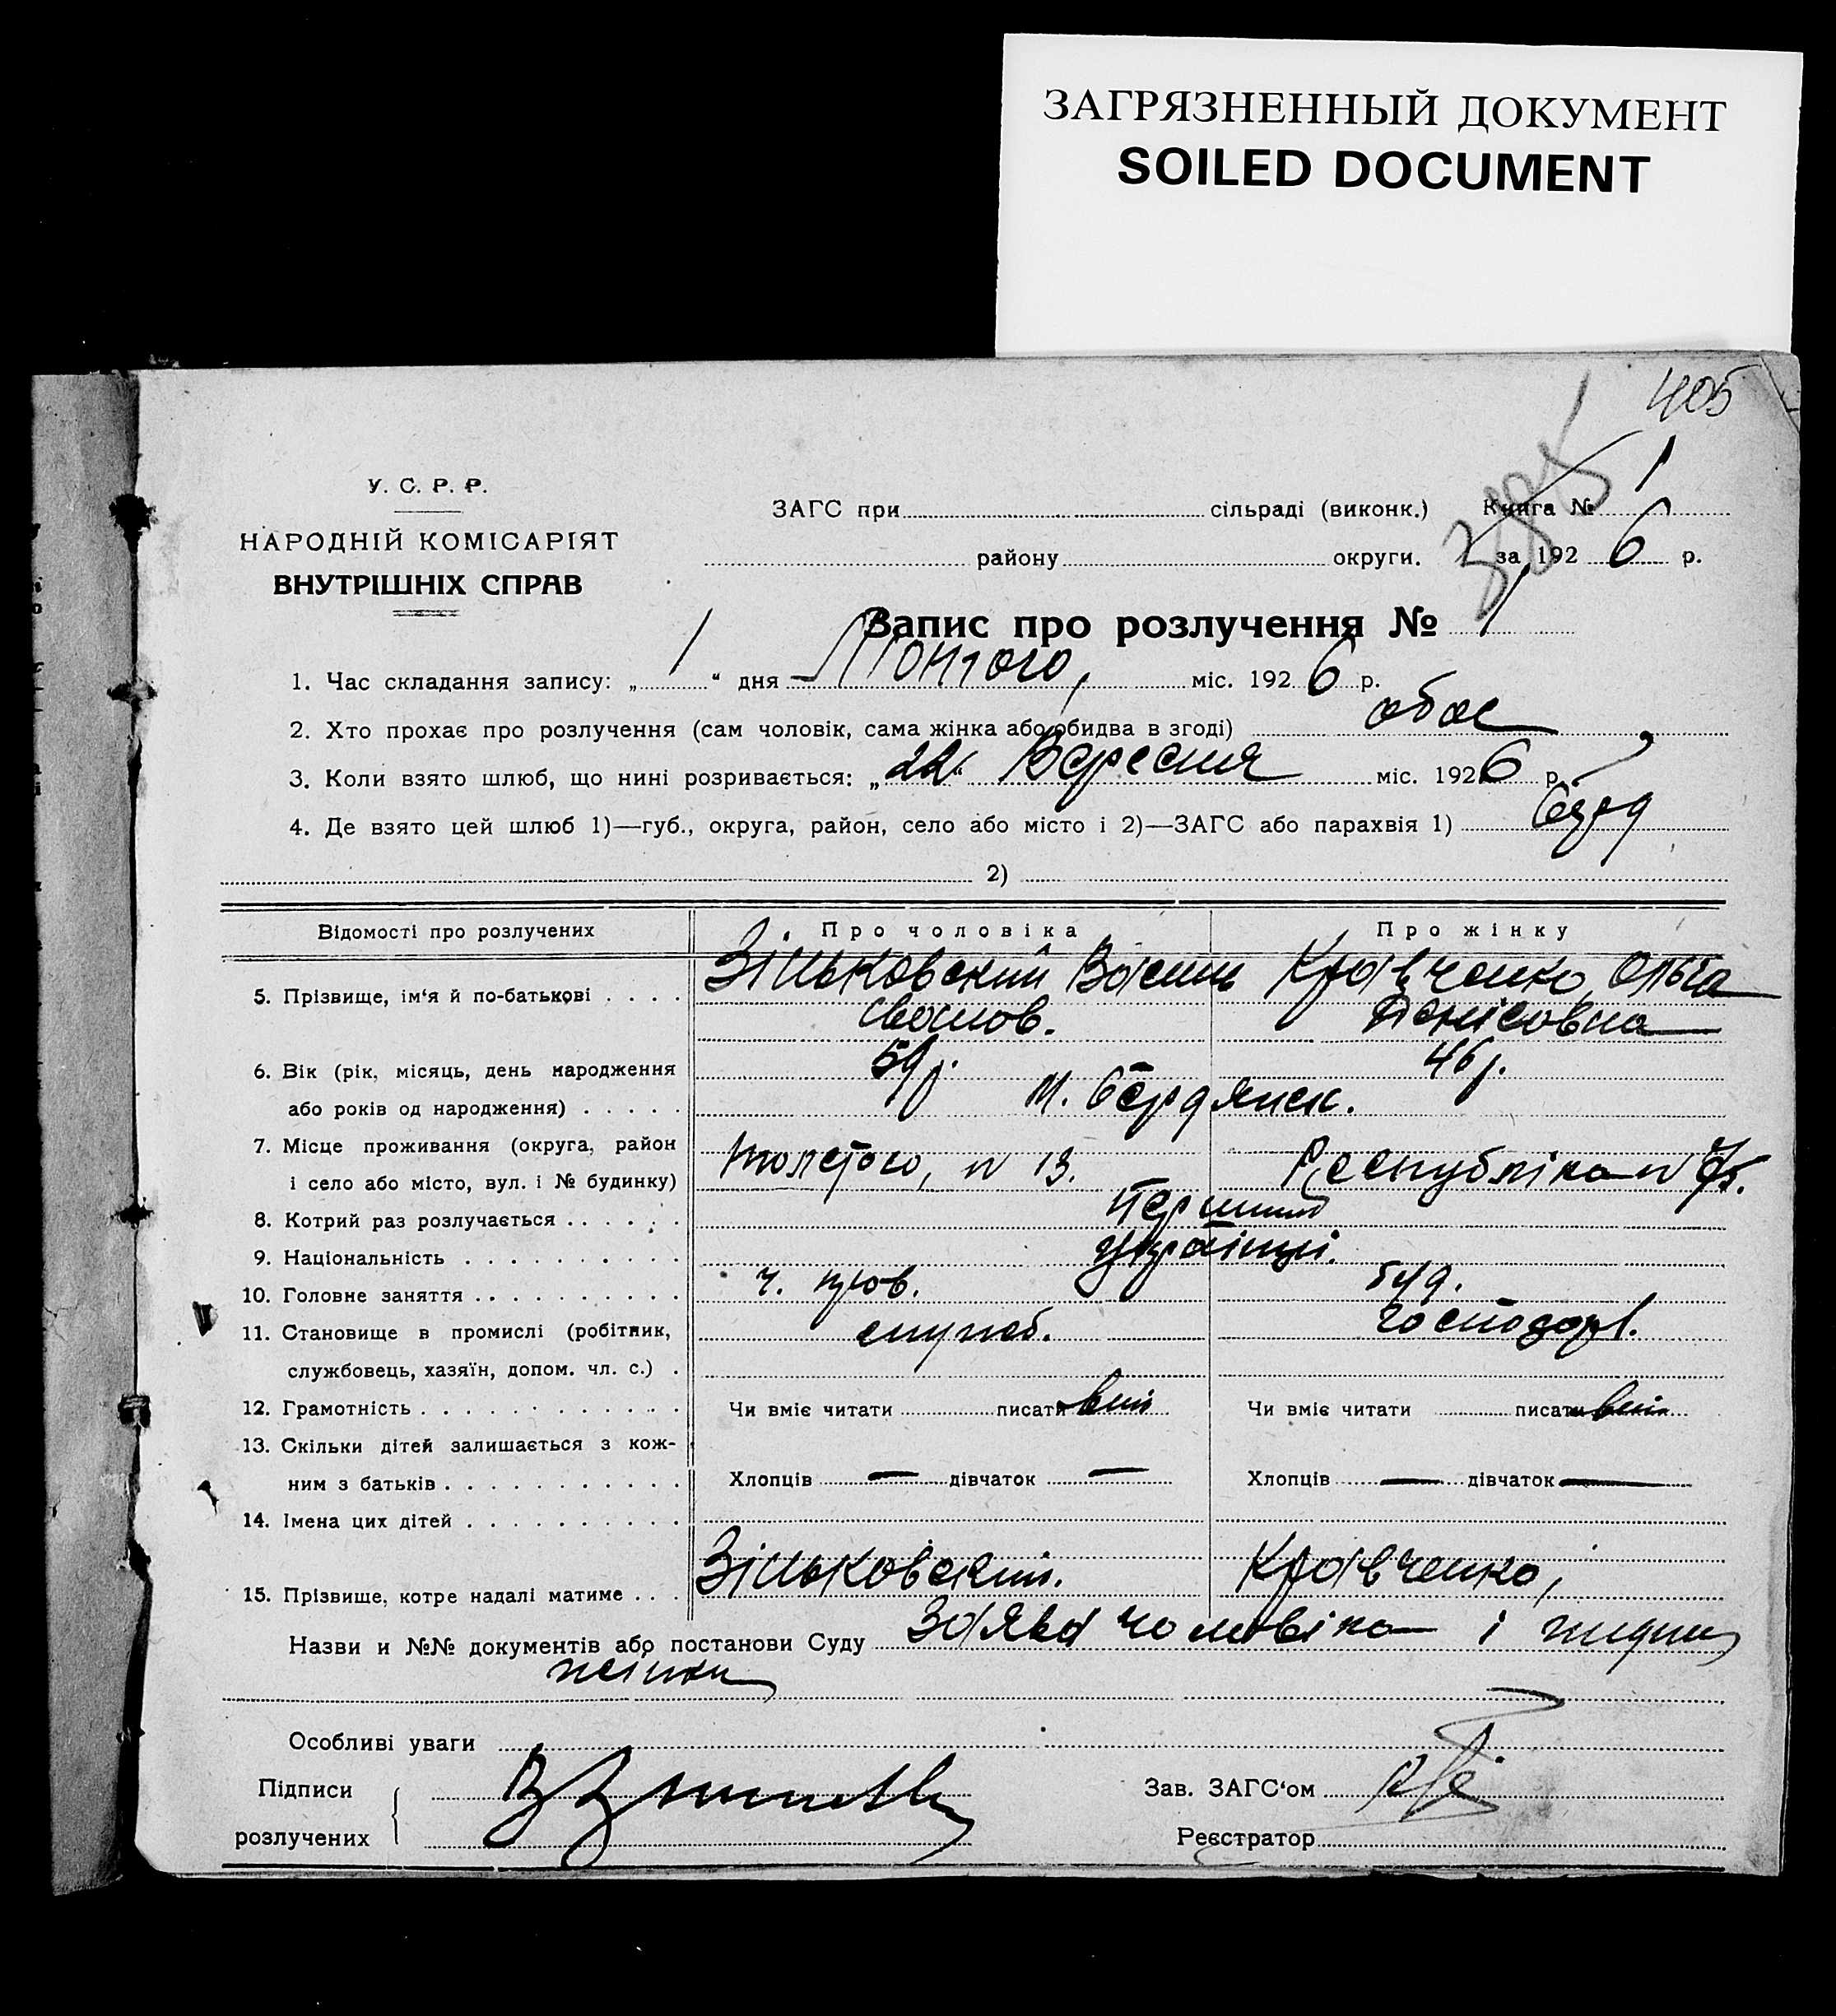 ЗАГРЯЗНЕННЫЙ ДОКУМЕНТ
SOILED DOCUMENT
405
У. С. Р. Р.
НАРОДНІЙ КОМІСАРІЯТ
ВНУТРІШНІХ СПРАВ
ЗАГС при сільраді (виконк.) Книга № 1
району округи. за 1926 р.
Запис про розлучення № 1
1. Час складання запису: „1“ дня Лютого, міс. 1926 р.
2. Хто прохає про розлучення (сам чоловік, сама жінка або обидва в згоді) обоє
3. Коли взято шлюб, що нині розривається: „22“ Вересня міс. 1926 р.
4. Де взято цей шлюб 1)—губ., округа, район, село або місто і 2)—ЗАГС або парахвія 1)
2)
Відомості про розлучених Про чоловіка Про жінку
5. Прізвище, ім‘я й по-батькові Зіньковский Василь Кравченко Ольга
Денісовна
6. Вік (рік, місяць, день народження 59 р. 46 р.
або років од народження) м. Бердянск.
7. Місце проживання (округа, район
і село або місто, вул. і № будинку) Толстого, № 13. Республіка №
8. Котрий раз розлучається Перший
9. Національність Українці.
10. Головне заняття
11. Становище в промислі (робітник, служб. господар.
службовець, хазяїн, допом. чл. с.)
12. Грамотність Чи вміє читати писати вміє Чи вміє читати писати вміє
13. Скільки дітей залишається з кож-
ним з батьків Хлопців — дівчаток — Хлопців — дівчаток —
14. Імена цих дітей
15. Прізвище, котре надалі матиме Зіньковський. Кравченко,
Назви и №№ документів або постанови Суду Заява чоловіка і
жінки
Особливі уваги
Підписи
розлучених
Зав. ЗАГС‘ом
Реєстратор